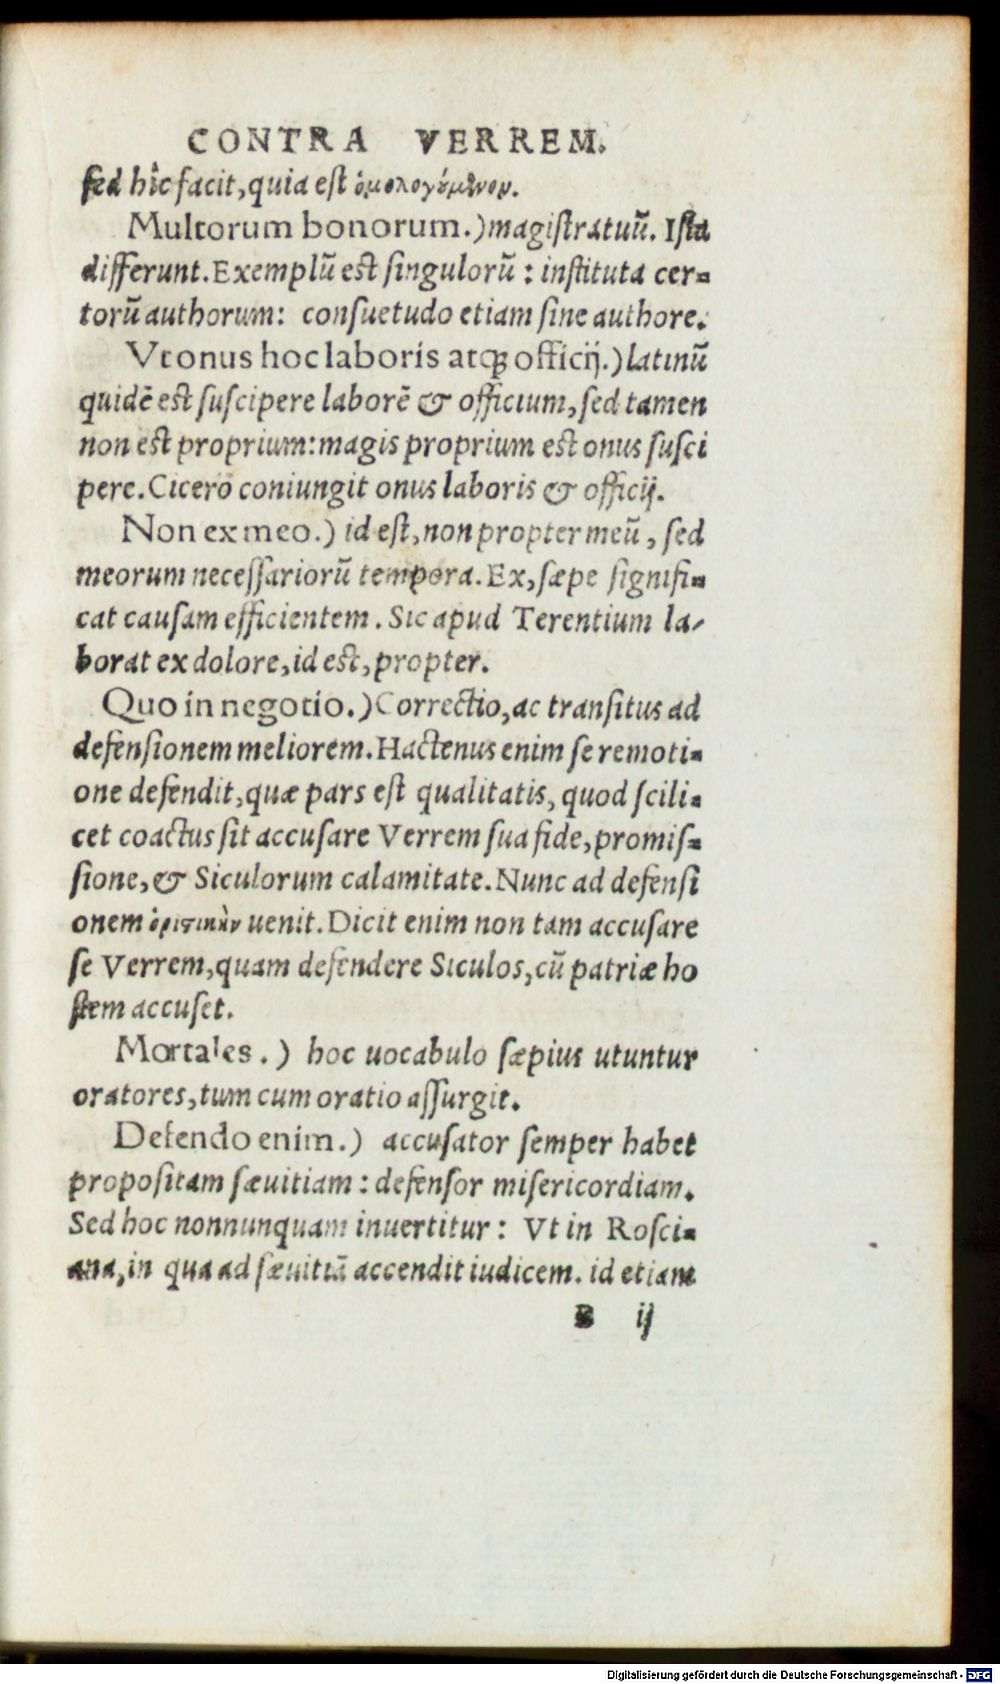 CONTRA VERREM.
sed hîc facit, quia est ὁμολογούμενον.
Multorum bonorum.) magistratuũ. Ista
differunt. Exemplũ est singulorũ : instituta cer=
torũ authorum: consuetudo etiam sine authore.
Vt onus hoc laboris atq; officij.) latinũ
quidẽ est suscipere laborẽ & officium, sed tamen
non est proprium: magis proprium est onus susci
pere. Cicero coniungit onus laboris & officij.
Non ex meo.) id est, non propter meũ, sed
meorum necessariorũ tempora. Ex, sæpe signifi=
cat causam efficientem. Sic apud Terentium la-
borat ex dolore, id est, propter.
Quo in negotio.) Correctio, ac transitus ad
defensionem meliorem. Hactenus enim se remoti=
one defendit, quæ pars est qualitatis, quod scili=
cet coactus sit accusare Verrem sua fide, promis=
sione, & Siculorum calamitate. Nunc ad defensi
onem ὁριστικὴν uenit. Dicit enim non tam accusare
se Verrem, quam defendere Siculos, cũ patriæ ho
stem accuset.
Mortales.) hoc uocabulo sæpius utuntur
oratores, tum cum oratio assurgit.
Defendo enim.) accusator semper habet
propositam sæuitiam : defensor misericordiam.
Sed hoc nonnunquam inuertitur : Vt in Rosci=
ana, in qua ad sæuitiã accendit iudicem. id etiam
B ij
Digitalisierung gefördert durch die Deutsche Forschungsgemeinschaft - DFG